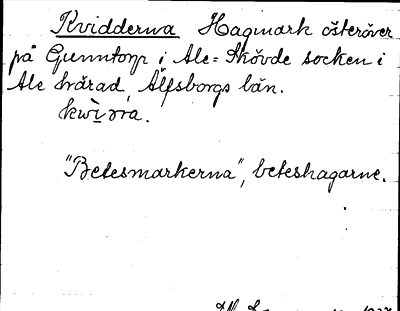 Kvidderna Hagmark österöver
på Gunntorp i Ale-Skövde socken i
Ale härad, Älfsborgs län.
"Betesmarkerna", beteshagarne.